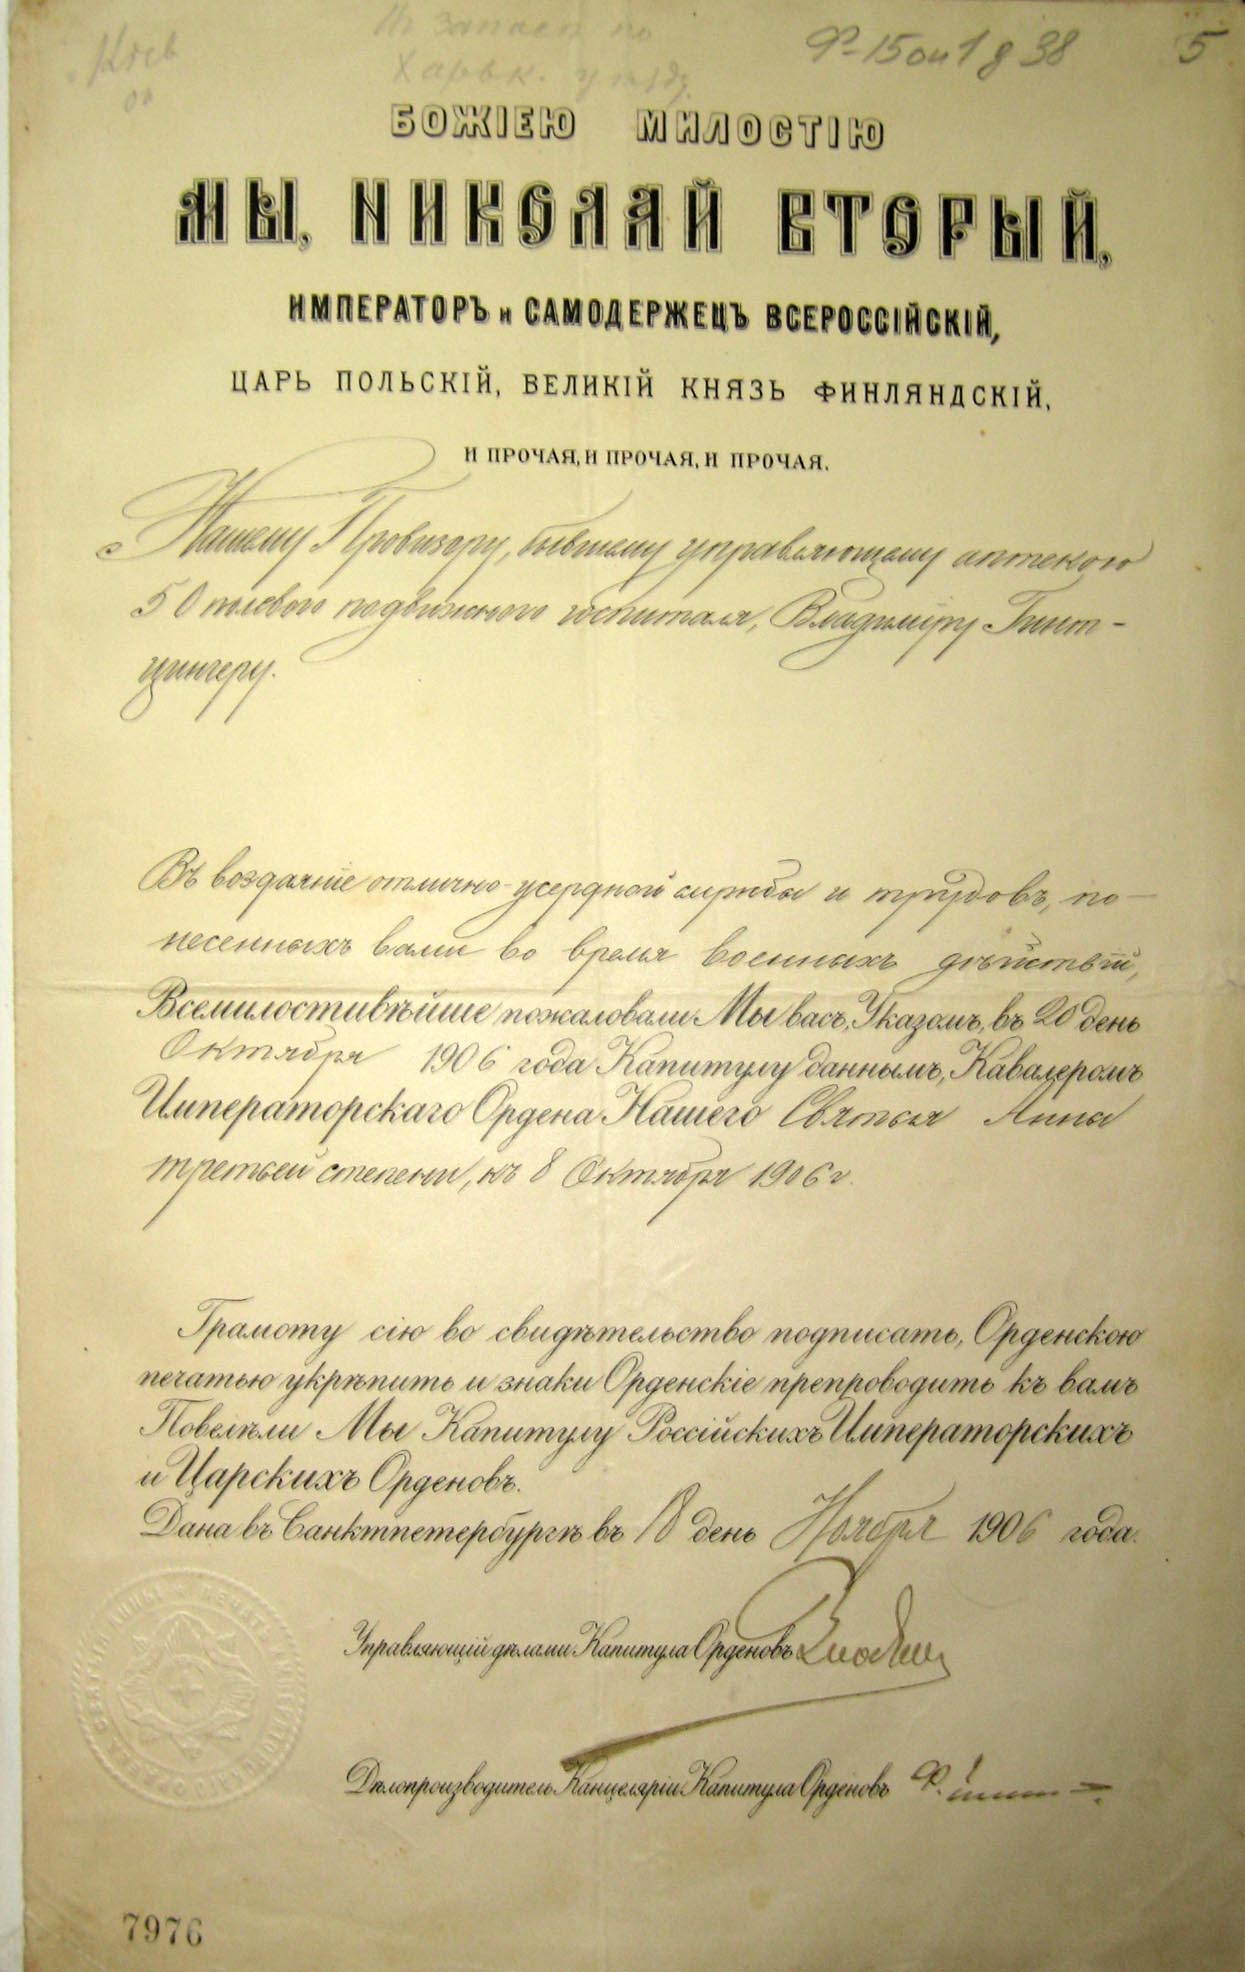 Ф-15 оп 1 д 38
5
БОЖІЕЮ МИЛОСТІЮ
МЫ, НИКОЛАЙ ВТОРЫЙ,
ИМПЕРАТОРЪ и САМОДЕРЖЕЦЪ ВСЕРОССІЙСКІЙ,
ЦАРЬ ПОЛЬСКІЙ, ВЕЛИКІЙ КНЯЗЬ ФИНЛЯНДСКІЙ,
И ПРОЧАЯ, И ПРОЧАЯ, И ПРОЧАЯ.
Нашему Провизору, бывшему управляющему аптекою
50 полевого подвижного госпиталя, Владиміру Гинт-
цингеру.
Въ воздаяніе отлично-усердной службы и трудовъ, по-
несенныхъ вами во время военныхъ дѣйствій,
Всемилостивѣйше пожаловали Мы васъ, Указомъ, въ 20 день
Октября 1906 года Капитулу даннымъ, Кавалеромъ
Императорскаго Ордена Нашего Святыя Анны
третьей степени, къ 8 Октября 1906 г.
Грамоту сію во свидѣтельство подписать, Орденскою
печатью укрѣпить и знаки Орденскіе препроводить къ вамъ
Повелѣли Мы Капитулу Россійскихъ Императорскихъ
и Царскихъ Орденовъ.
Дана въ Санктпетербургѣ въ 18 день Ноября 1906 года.
Управляющій дѣлами Капитула Орденовъ
Дѣлопроизводитель Канцеляріи Капитула Орденовъ
7976